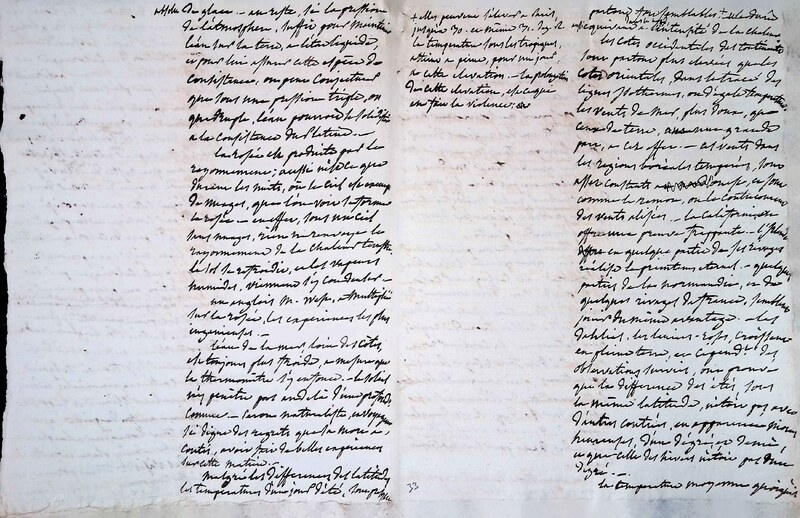 de glace - au reste, si la pression
de l'atmosphère, suffit pour mainte
l'eau sur la terre, en état liquide,
et pour lui assurer cette espèce de
consistance, on peut conjecturer
que sous une pression triple, ou
quadruple, l'eau pourroit
a la consistance
la rosée est produite par le
rayonnement; aussi n'est ce que
durant les nuits, où le ciel est
de nuages, que l'on voit se former
la rosée - en effet, sous un ciel
sans nuages, rien ne renvoye le
rayonnement de la chaleur terrestre
le sol se refroidit, et les vapeurs
humides, viennent s'y condenser -
un anglois M. Wells, a multiplié
sur la rosée, les expériences les plus
ingénieuses -
l'eau de la mer loin des côtes
est toujours plus froide, a mesure que
le thermomètre s'y enfonce - le soleil
n'y pénètre pas au delà d'une
connue - le naturaliste,
si digne des regrets que sa mort a
coutés, avoit fait de belles expériences
sur cette matière -
malgré les différences des latitudes
les températures d'un jour d'été, sont
+ elles peuvent s'élever à Paris,
jusqu'à 30. et même 31.
la température sous les tropiques,
a peine, pour un jour
a cette élévation -
de cette élévation, est ce qui
en fait la violence.
33
partout semblables + la durée
l'intensité de la chaleur
les côtes occidentales des continents
sont partout plus élevées que les
côtes orientales, dans le tracé des
lignes isothermes, ou d'égale température
les vents de mer, plus doux, que
ceux de terre, ont une grande
part, a cet effet - ces vents dans
les régions boréales tempérées, sont
assez constants d'ouest, ce sont
comme le remou, ou le contrecourant
des vents alisés - la Californie
offre une preuve frappante -
en quelque partie de ses rivages
réalise le printems éternel - quelques
parties de la normandie, et de
quelques rivages de france, semblent
jouir du même avantage - les
dahlias, les lauriers-roses, croissent
en pleine terre, et cependt. des
observations suivies, ont prouvé
que la différence des étés sous
la même latitude, n'étoit pas avec
d'autres contrées, en apparence moins
heureuses, d'un degré et demi,
et que celle des hivers n'étoit pas d'un
degré. -
la température moyenne